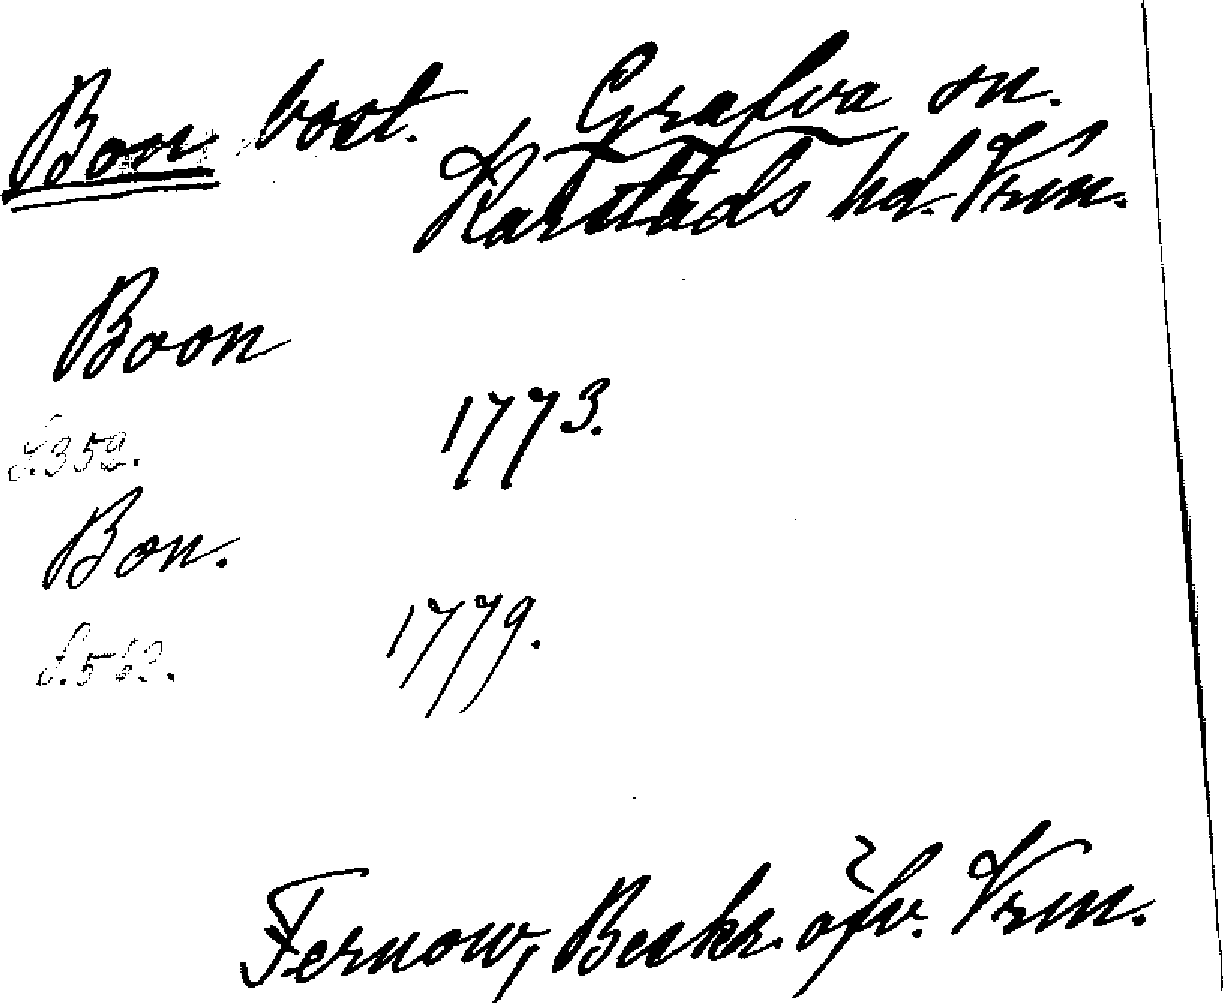 Bon bost. Grafva sn.
Karlstads hd. Vrm.
Boon
1773.
S.352.
Bon.
1779.
S.562.
Fernow, Beskr. öfv. Vrm.